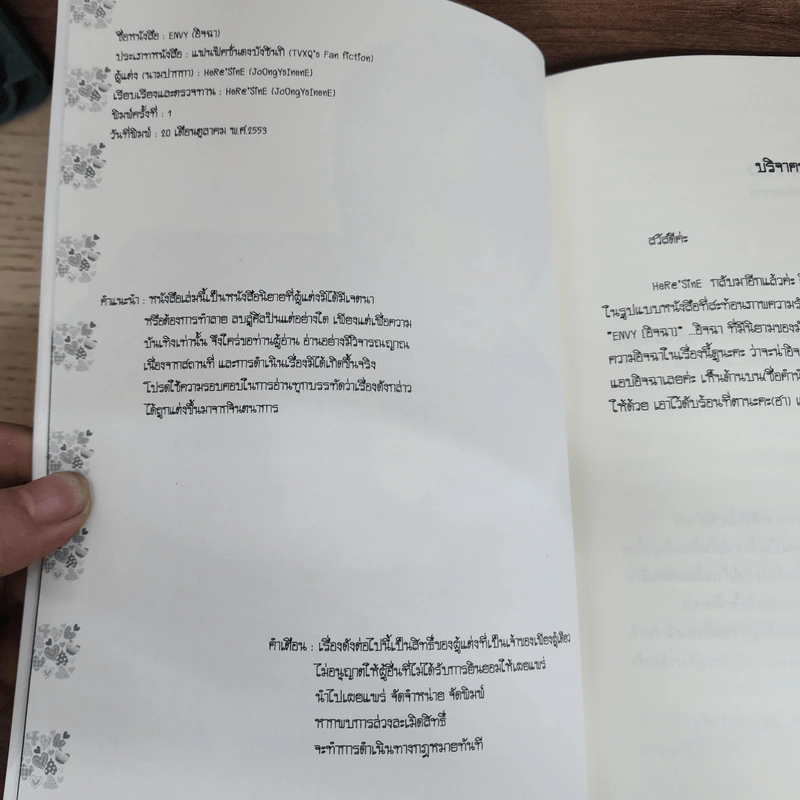 ชื่อหนังสือ : ENVY (อิจฉา)
ประเภทหนังสือ : แฟนฟิคชั่นดงบังชินกิ (TVXQ's Fan fiction)
ผู้แต่ง (นามปากกา) : HeRe'SInE (JoOngYsInenE)
เรียบเรียงและตรวจทาน : HeRe'SInE (JoOngYsInenE)
พิมพ์ครั้งที่ : 1
วันที่พิมพ์ : 20 เดือนตุลาคม พ.ศ.2553
คำแนะนำ : หนังสือเล่มนี้เป็นหนังสือนิยายที่ผู้แต่งมิได้มีเจตนา
หรือต้องการทำลาย ลบลู่ศิลปินแต่อย่างใด เพียงแต่เพื่อความ
บันเทิงเท่านั้น จึงใคร่ขอท่านผู้อ่าน อ่านอย่างมีวิจารณญาณ
เนื่องจากสถานที่ และการดำเนินเรื่องมิได้เกิดขึ้นจริง
โปรดใช้ความรอบคอบในการอ่านทุกบรรทัดว่าเรื่องดังกล่าว
ได้ถูกแต่งขึ้นมาจากจินตนาการ
คำเตือน : เรื่องดังต่อไปนี้เป็นสิทธิ์ของผู้แต่งที่เป็นเจ้าของเพียงผู้เดียว
ไม่อนุญาตให้ผู้อื่นที่ไม่ได้รับการยินยอมให้เผยแพร่
นำไปเผยแพร่ จัดจำหน่าย จัดพิมพ์
หากพบการล่วงละเมิดสิทธิ์
จะทำการดำเนินทางกฎหมายทันที
สวัสดีค่ะ
HeRe'SInE กลับมาอีกแล้วค่ะ
ในรูปแบบหนังสือที่สะท้อนภาพความ
"ENVY (อิจฉา)" ...อิจฉา ที่มีนิยามของ
ความอิจฉาในเรื่องนี้ดูนะคะ ว่าจะน่า
แอบอิจฉาเลยค่ะ เห็นด้านบน(ชื่อ
ให้ด้วย เอาไว้ดับร้อนที่ตานะคะ(ฮา)